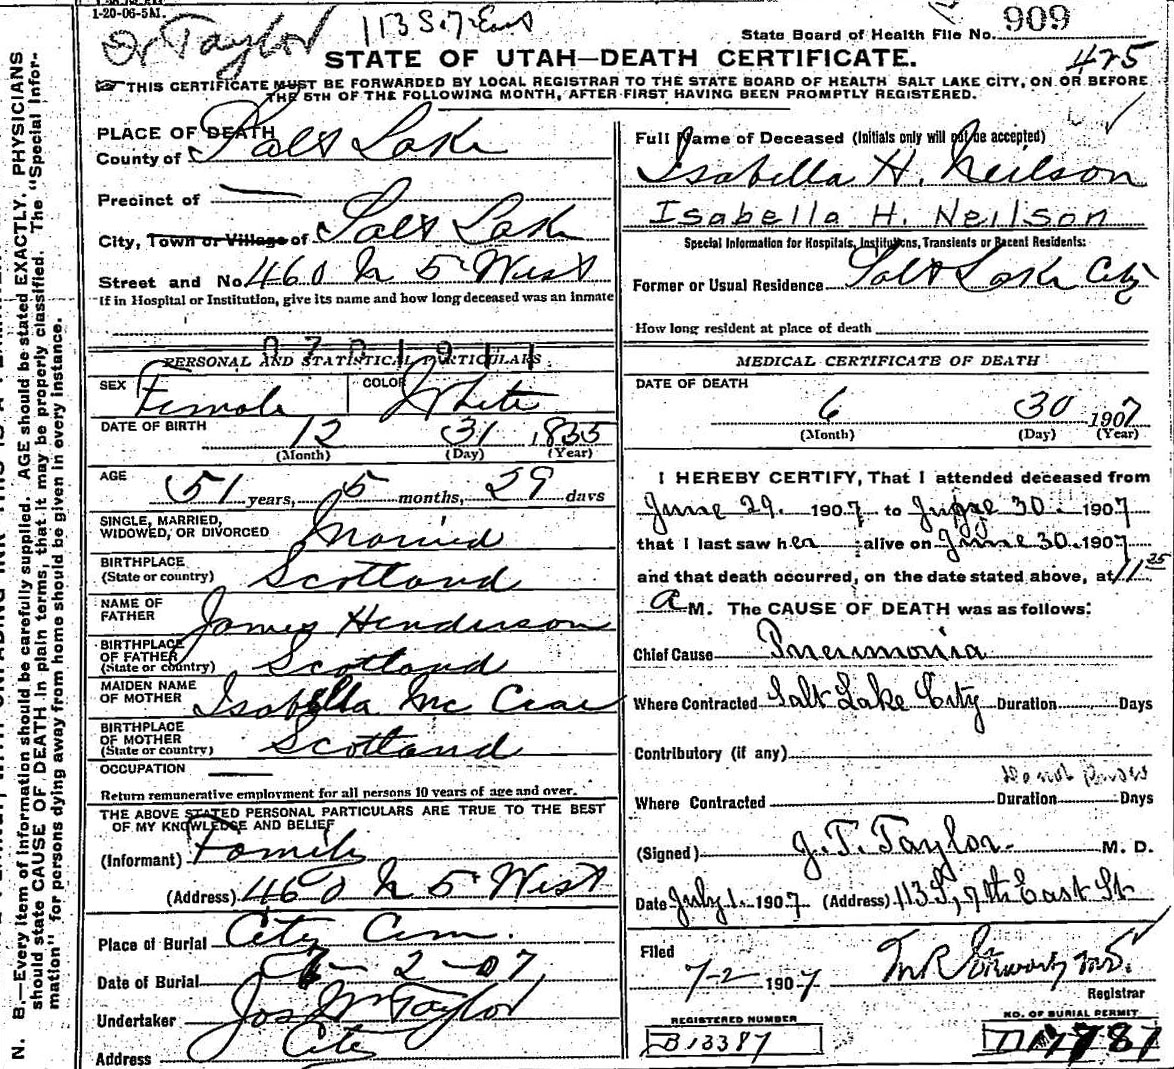 1-20-06-5M.
Dr Taylor 113 S. 7 East
State Board of Health File No. 909
STATE OF UTAH—DEATH CERTIFICATE. 425
THIS CERTIFICATE MUST BE FORWARDED BY LOCAL REGISTRAR TO THE STATE BOARD OF HEALTH SALT LAKE CITY, ON OR BEFORE
THE 5TH OF THE FOLLOWING MONTH, AFTER FIRST HAVING BEEN PROMPTLY REGISTERED.
N. B.—Every item of information should be carefully supplied. AGE should be stated EXACTLY. PHYSICIANS
should state CAUSE OF DEATH in plain terms, that it may be properly classified. The "Special Infor-
mation" for persons dying away from home should be given in every instance.
PLACE OF DEATH
County of Salt Lake
Precinct of —
City, Town or Village of Salt Lake
Street and No. 460 N 5 West
If in Hospital or Institution, give its name and how long deceased was an inmate
PERSONAL AND STATISTICAL PARTICULARS
SEX Female COLOR White
DATE OF BIRTH 12 31 1855
(Month) (Day) (Year)
AGE 51 years, 5 months, 29 days
SINGLE, MARRIED,
WIDOWED, OR DIVORCED Married
BIRTHPLACE
(State or country) Scotland
NAME OF
FATHER James Henderson
BIRTHPLACE
OF FATHER
(State or country) Scotland
MAIDEN NAME
OF MOTHER Isabella Mc Crae
BIRTHPLACE
OF MOTHER
(State or country) Scotland
OCCUPATION —
Return remunerative employment for all persons 10 years of age and over.
THE ABOVE STATED PERSONAL PARTICULARS ARE TRUE TO THE BEST
OF MY KNOWLEDGE AND BELIEF
(Informant) Family
(Address) 460 N 5 West
Place of Burial City Cem.
Date of Burial 7 - 2 - 07
Undertaker Jos Wm Taylor
Address City
Full Name of Deceased (Initials only will not be accepted)
Isabella H. Neilson
Isabella H. Neilson
Special Information for Hospitals, Institutions, Transients or Recent Residents:
Former or Usual Residence Salt Lake City
How long resident at place of death
MEDICAL CERTIFICATE OF DEATH
DATE OF DEATH
6 30 1907
(Month) (Day) (Year)
I HEREBY CERTIFY, That I attended deceased from
June 29. 1907 to June 30. 1907
that I last saw her alive on June 30. 1907
and that death occurred, on the date stated above, at 11.25
A M. The CAUSE OF DEATH was as follows:
Chief Cause Pneumonia
Where Contracted Salt Lake City Duration Days
Contributory (if any)
Where Contracted Duration Days
(Signed) J. T. Taylor M. D.
Date July 1. 1907 (Address) 113 S, 7th East St
Filed
7-2 1907
Registrar
REGISTERED NUMBER NO. OF BURIAL PERMIT
B13387